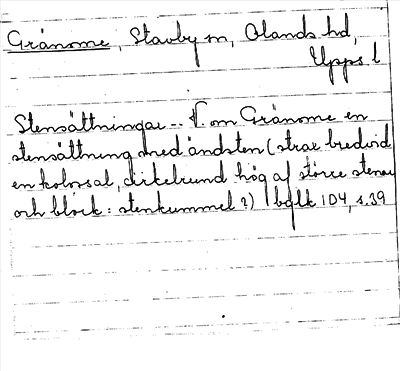 Gränome, Stavby sn, Olands hd,
Upps. l
Stensättningar -- V. om Gränome en
stensättning med ändsten (strax bredvid
en kolossal, cirkelrund hög af större stenar
och block: stenkummel?) bqlk 104, s. 39